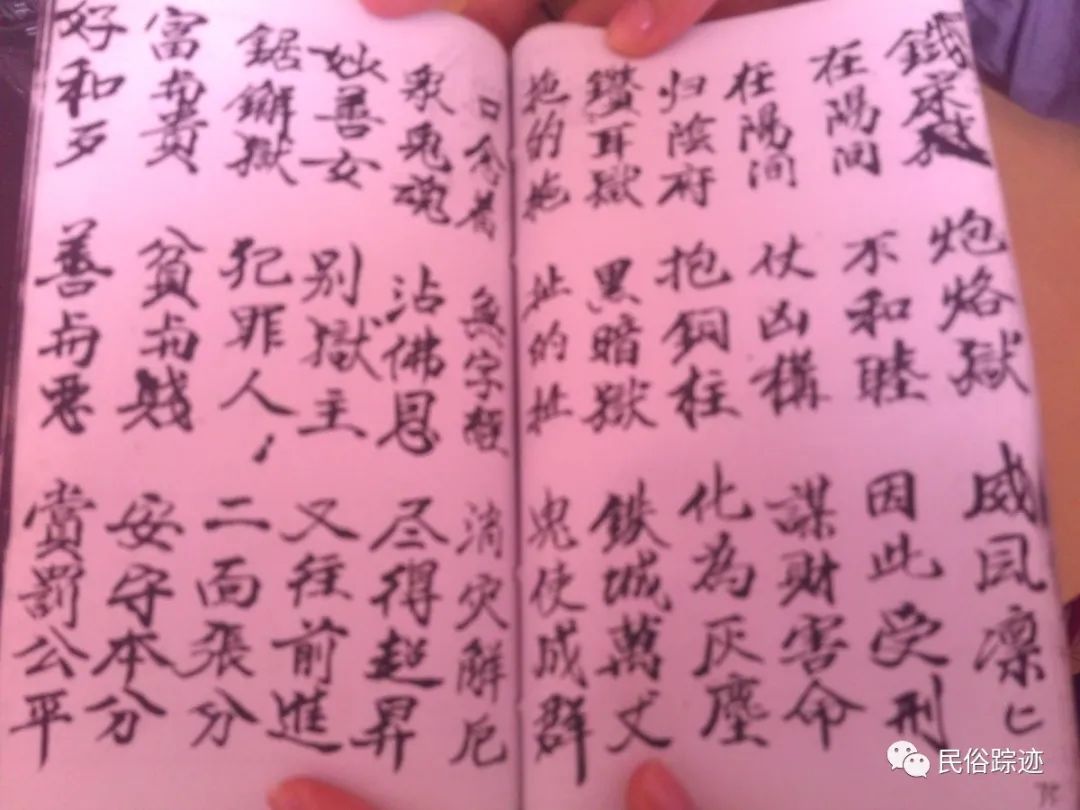 鐵床獄 炮烙獄 威風凛〻
在陽间 不和睦 因此受刑
在陽间 仗凶構 謀财害命
归陰府 抱銅柱 化為灰塵
鑽耳獄 黑暗獄 鉄城萬丈
拖的拖 扯的扯 鬼使成群
口念着 無字經 消灾解厄
众鬼魂 沾佛恩 尽得超昇
妙善女 别獄主 又往前進
鋸獄 犯罪人 二面張分
富与贵 貧与贱 安守本分
好和歹 善与恶 賞罰公平
民俗踪迹